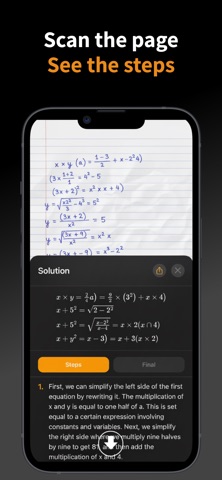 Scan the page
See the steps
x × y (a) = 1-3/2 + x-2²4)
(3x 1+2/2 = 4²-5
(3x + 2)² = x² x x + 4)
= 5²
y = (3x + 2)/x² = 5
= x² x
= x³-2²
Solution
x + 5² = √2 - 2²
x + 5² = √x-2²/x-4 = x × 2(x ∩ 4)
x + y² = x - 3) = x + 3(x × 2)
Steps
Final
1. First, we can simplify the left side of the first
equation by rewriting it. The multiplication of
x and y is equal to one half of a. This is set
equal to a certain expression involving
constants and variables. Next, we simplify
the right side where we multiply nine halves
by nine to get 81 and then add the
multiplication of x and 4.